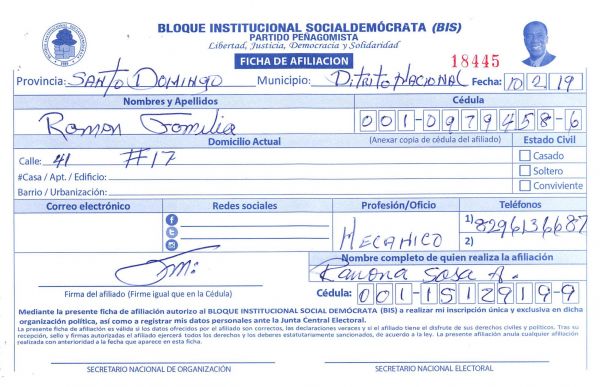 BLOQUE INSTITUCIONAL SOCIALDEMÓCRATA (BIS)
PARTIDO PEÑAGOMISTA
Libertad, Justicia, Democracia y Solidaridad
FICHA DE AFILIACION
18445
Provincia: Santo Domingo Municipio: Ditrito Nacional Fecha: 10 2 19
Nombres y Apellidos Cédula
Ramon Familia 001-0979458-6
Domicilio Actual (Anexar copia de cédula del afiliado) Estado Civil
Calle: 41 #17 Casado
#Casa / Apt. / Edificio: Soltero
Barrio / Urbanización: Conviviente
Correo electrónico Redes sociales Profesión/Oficio Teléfonos
Mecanico 1) 8296136687
2)
Nombre completo de quien realiza la afiliación
Ramona Sosa A.
Firma del afiliado (Firme igual que en la Cédula) Cédula: 001-1512919-9
Mediante la presente ficha de afiliación autorizo al BLOQUE INSTITUCIONAL SOCIAL DEMÓCRATA (BIS) a realizar mi inscripción única y exclusiva en dicha
organización política, así como a registrar mis datos personales ante la Junta Central Electoral.
La presente ficha de afiliación es válida si los datos ofrecidos por el afiliado son correctos, las declaraciones veraces y si el afiliado tiene el disfrute de sus derechos civiles y políticos. Tras su
recepción, sello y firmas autorizadas el afiliado ejercerá todos los derechos y los deberes estatutariamente sancionados, de acuerdo a la ley. La presente afiliación anula cualquier afiliación
realizada con anterioridad a la fecha que aparece en esta ficha.
SECRETARIO NACIONAL DE ORGANIZACIÓN SECRETARIO NACIONAL ELECTORAL